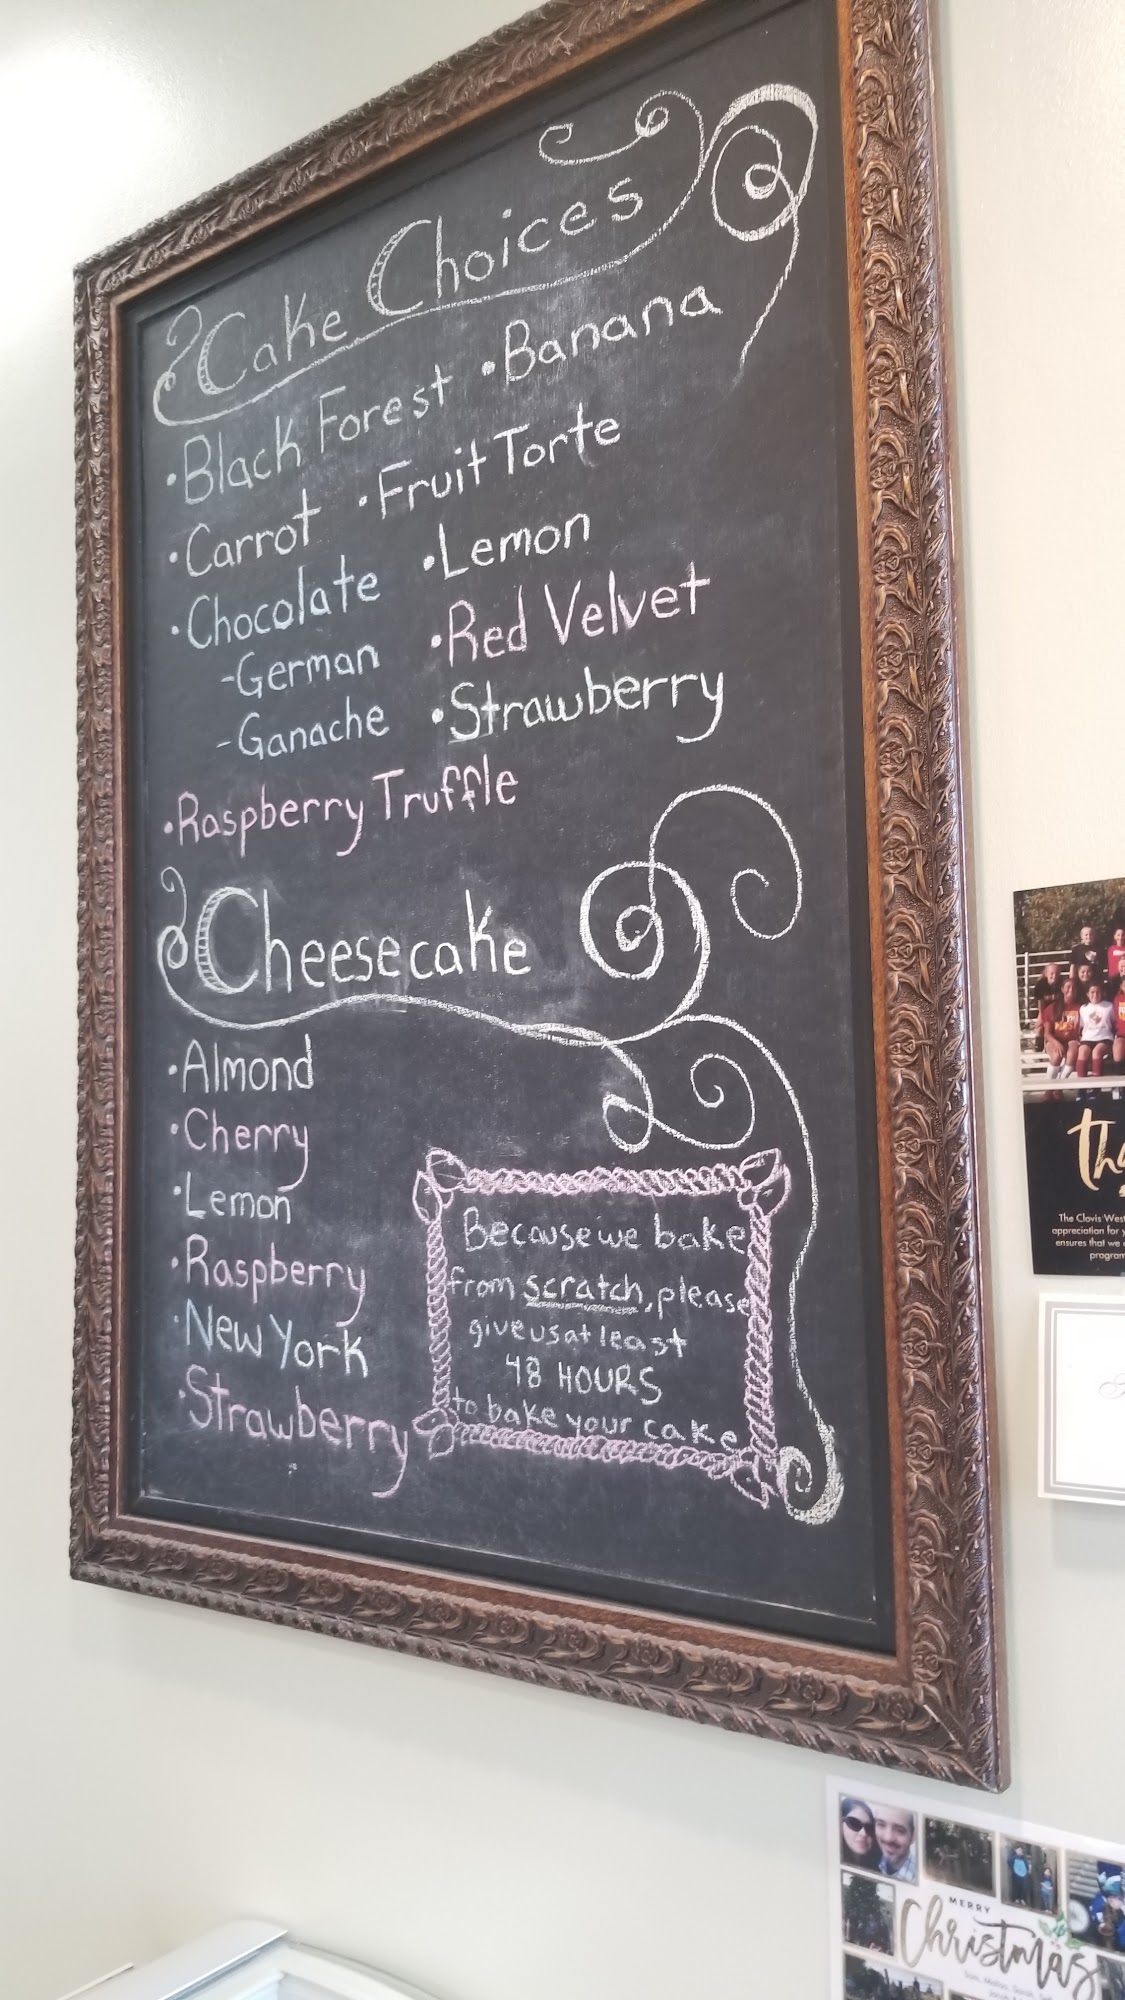 Cake Choices
•Black Forest •Banana
•Carrot •Fruit Torte
•Chocolate •Lemon
-German •Red Velvet
-Ganache •Strawberry
•Raspberry Truffle
Cheesecake
•Almond
•Cherry
•Lemon
•Raspberry
•New York
•Strawberry
Because we bake
from scratch, please
give us at least
48 HOURS
to bake your cake
The Clovis West
appreciation for y
ensures that we
program
MERRY
Christmas